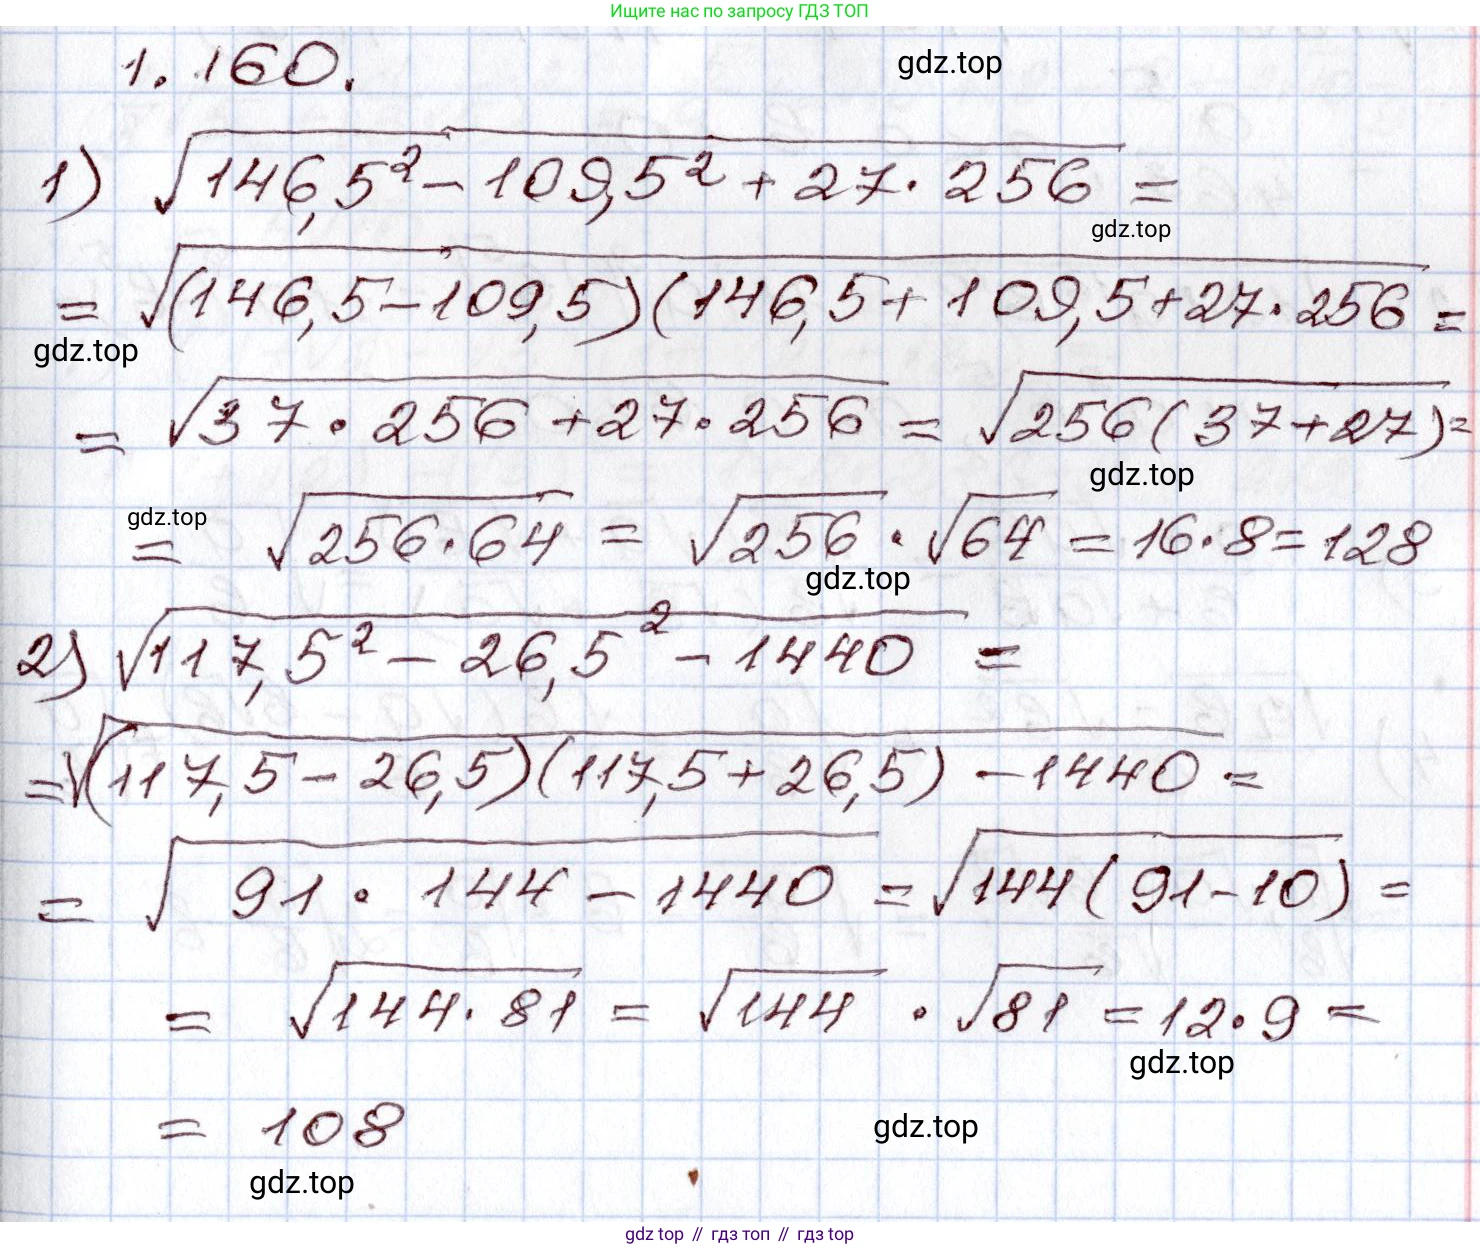 Ищите нас по запросу ГДЗ ТОП
1.160.
gdz.top
1) √146,5² - 109,5² + 27 · 256 =
gdz.top
= √(146,5 - 109,5)(146,5 + 109,5 + 27 · 256 =
gdz.top
= √37 · 256 + 27 · 256 = √256(37 + 27) =
gdz.top
gdz.top
= √256 · 64 = √256 · √64 = 16 · 8 = 128
gdz.top
2) √117,5² - 26,5² - 1440 =
= √(117,5 - 26,5)(117,5 + 26,5) - 1440 =
= √91 · 144 - 1440 = √144(91 - 10) =
= √144 · 81 = √144 · √81 = 12 · 9 =
gdz.top
= 108
gdz.top
gdz.top
gdz top // гдз топ // гдз top